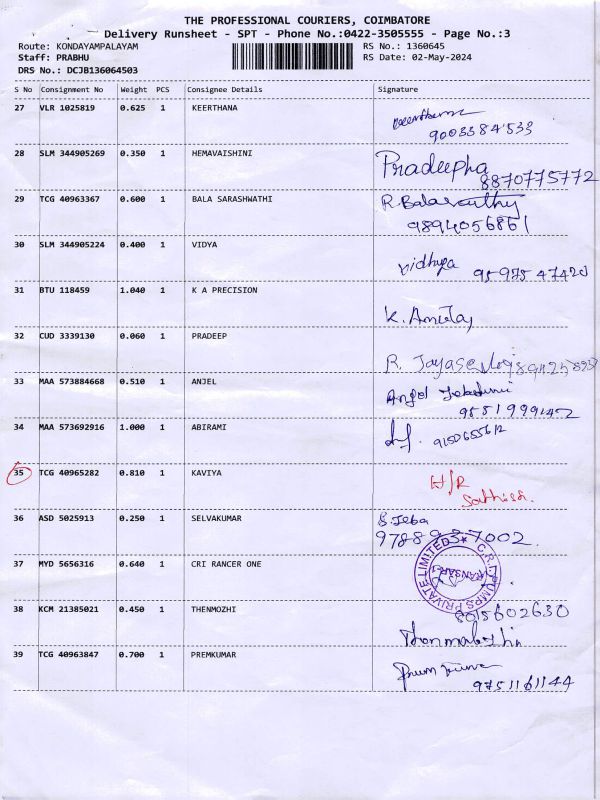 THE PROFESSIONAL COURIERS, COIMBATORE
Delivery Runsheet - SPT - Phone No.:0422-3505555 - Page No.:3
Route: KONDAYAMPALAYAM RS No.: 1360645
Staff: PRABHU RS Date: 02-May-2024
DRS No.: DCJB136064503
S No Consignment No Weight PCS Consignee Details Signature
27 VLR 1025819 0.625 1 KEERTHANA
9003384533
28 SLM 344905269 0.350 1 HEMAVAISHINI Pradeepha
8870775772
29 TCG 40963367 0.600 1 BALA SARASHWATHI R.Balasruthy
9894056861
30 SLM 344905224 0.400 1 VIDYA Vidhya
95975 47420
31 BTU 118459 1.040 1 K A PRECISION
K.
32 CUD 3339130 0.060 1 PRADEEP
R.
33 MAA 573884668 0.510 1 ANJEL
34 MAA 573692916 1.000 1 ABIRAMI
9150655612
35 TCG 40965282 0.810 1 KAVIYA H/R
Sathish.
36 ASD 5025913 0.250 1 SELVAKUMAR S.Jeba
9788937002.
37 MYD 5656316 0.640 1 CRI RANCER ONE C.R.I. PUMPS PRIVATE LIMITED
38 KCM 21385021 0.450 1 THENMOZHI 8015602630
39 TCG 40963847 0.700 1 PREMKUMAR
9751161144